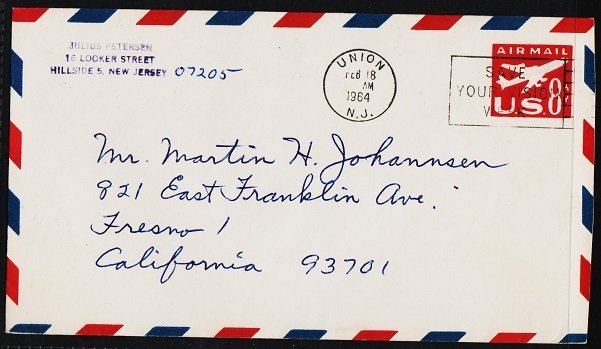 JULIUS PETERSEN
16 LOOKER STREET
HILLSIDE 5, NEW JERSEY 07205
UNION
FEB 18
AM
1964
N.J.
SAVE
YOUR VISION
AIR MAIL
U.S. 8¢
Mr. Martin H. Johannsen
821 East Franklin Ave.
Fresno 1
California 93701